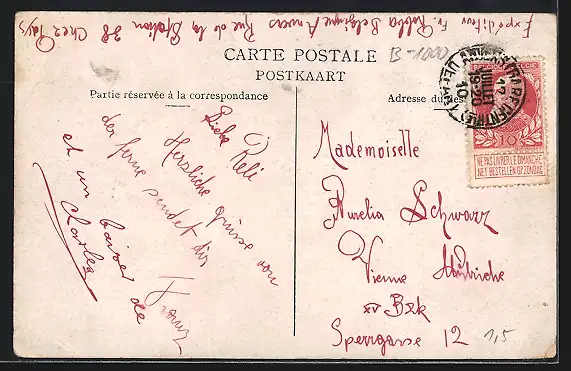 Expediteur Fr. Robba Belgique Anvers Rue de la Station 38 Chez Pays
CARTE POSTALE
POSTKAART
B-1000
Partie réservée à la correspondance
Adresse du
Liebe Reli
Herzliche Grüsse von
der ferne sendet dir
Franz
et un baiser de
Charles
Mademoiselle
Aurelia Schwarz
Vienne Autriche
XV Bzk
Sperrgasse 12
1,5
BELGIQUE BELGIE
10
NE PAS LIVRER LE DIMANCHE
NIET BESTELLEN OP ZONDAG
17
JUILLET
19-20
10